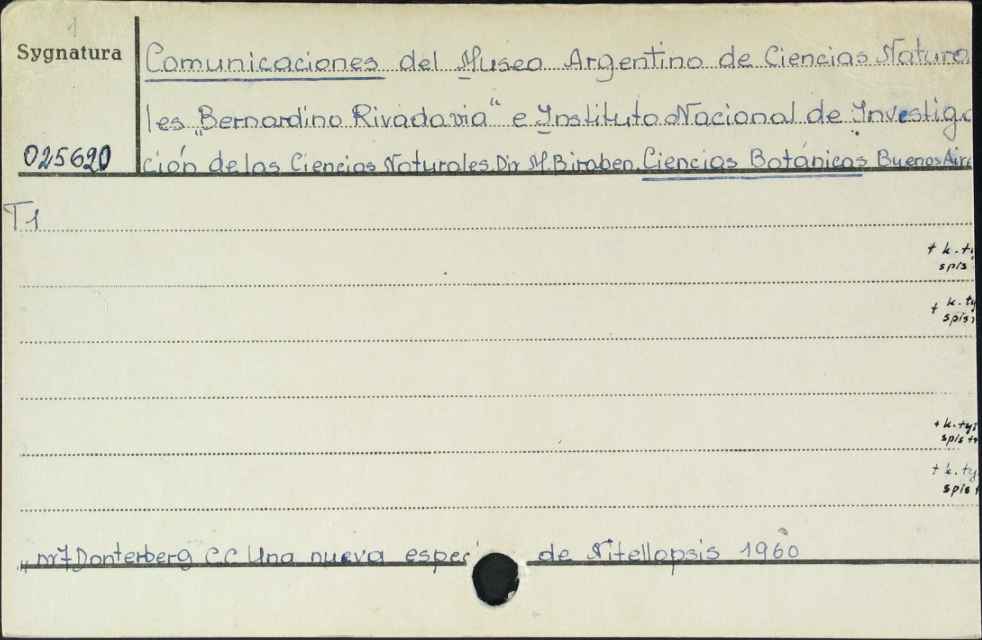 1
Sygnatura
Comunicaciones del Museo Argentino de Ciencias Natura
les „Bernardino Rivadavia“ e Instituto Nacional de Investiga
025620
ción de las Ciencias Naturales. Dir M. Biraben. Ciencias Botánicas Buenos Aire
T1
+ k. ty
spis
+ k. ty
spis
+ k. ty
spis tr
+ k. ty
spis t
„ nr7 Donterberg C.C Una nueva especi de Nitellopsis 1960